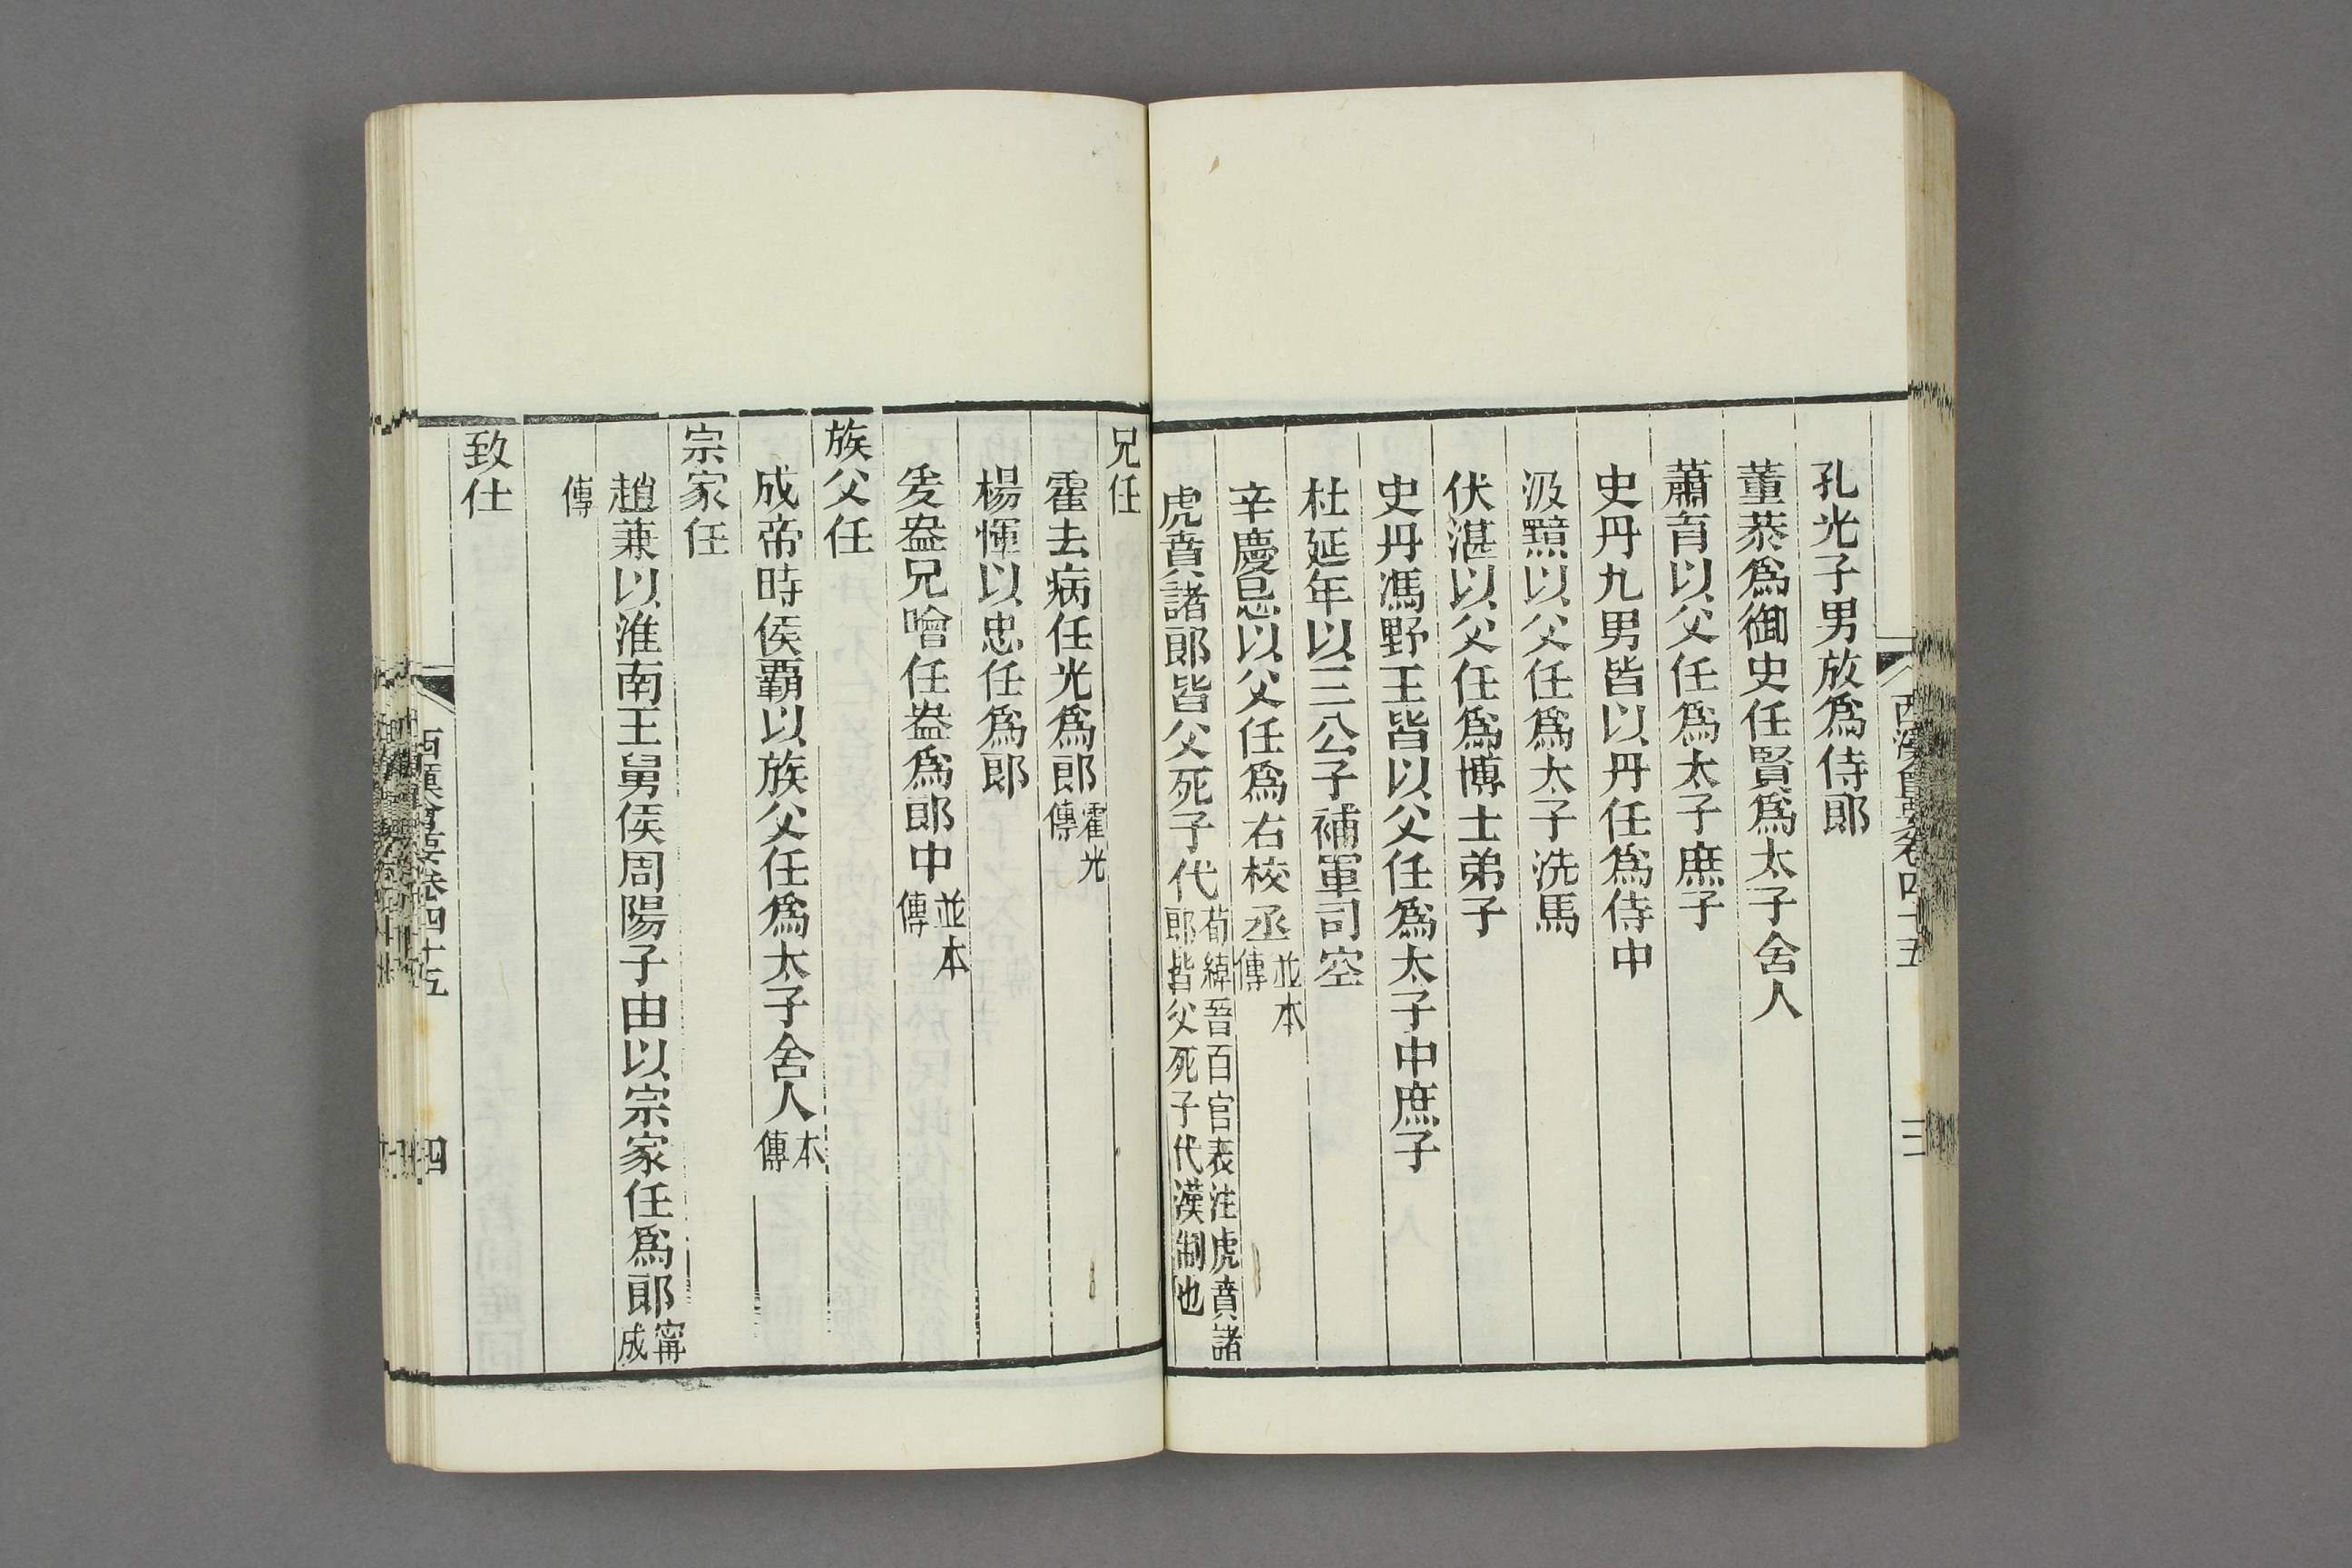 孔光子男放爲侍郎
董恭爲御史任賢爲太子舍人
蕭育以父任爲太子庶子
史丹九男皆以丹任爲侍中
汲黯以父任爲太子洗馬
伏湛以父任爲博士弟子
史丹馮野王皆以父任爲太子中庶子
杜延年以三公子補軍司空
辛慶忌以父任爲右校丞並本傳
虎賁諸郎皆父死子代荀綽晉百官表注虎賁諸郎皆父死子代漢制也
兄任
霍去病任光爲郎霍光傳
楊惲以忠任爲郎
爰盎兄噲任盎爲郎中並本傳
族父任
成帝時侯霸以族父任爲太子舍人本傳
宗家任
趙兼以淮南王舅侯周陽子由以宗家任爲郎甯成
傳
致仕
西漢會要卷四十五
四
西漢會要卷四十五
三